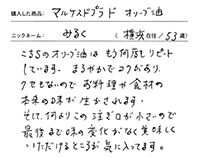 購入した商品: マルケスデプラド オリーブ油
ニックネーム: みるく ( 横浜 在住 / 53 歳)
こちらのオリーブ油は もう何度もリピート
しています。 まろやかでコクがあり、
クセもないので お料理や食材の
本来の味が生かされます。
そして、何より この注ぎ口が小さいので
最後まで味の変化がなく美味しく
いただけるところが気に入ってます。